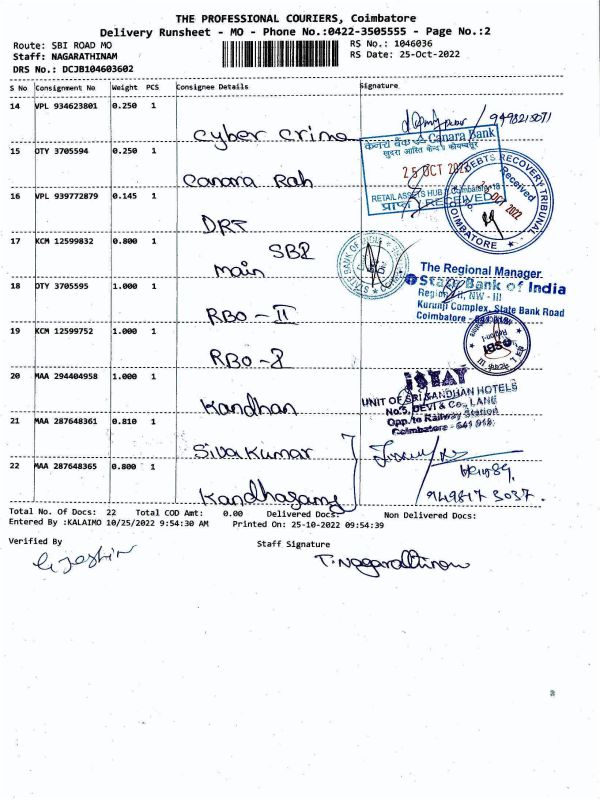 THE PROFESSIONAL COURIERS, Coimbatore
Delivery Runsheet - MO - Phone No.:0422-3505555 - Page No.:2
Route: SBI ROAD MO
RS No.: 1046036
Staff: NAGARATHINAM
RS Date: 25-Oct-2022
DRS No.: DCJB104603602
S No Consignment No Weight PCS Consignee Details Signature
14 VPL 934623801 0.250 1
Cyber crime
15 DTY 3705594 0.250 1
Canara Rah
केनरा बैंक Canara Bank
25 OCT 2022
RETAIL ASSETS HUB, Coimbatore-18
RECEIVED
DEBTS RECOVERY TRIBUNAL
Received
OCT 2022
COIMBATORE
16 VPL 939772879 0.145 1
DRT
17 KCM 12599832 0.800 1
SBI
main
STATE BANK OF INDIA
The Regional Manager.
State Bank of India
NW - III
Kurunji Complex, State Bank Road
Coimbatore - 641 018
18 DTY 3705595 1.000 1
RBO - II
19 KCM 12599752 1.000 1
RBO - I
SBI
20 MAA 294404958 1.000 1
Kandhan
iSTAY
UNIT OF SRI KANDHAN HOTELS
No.5, DEVI & Co., LANE
Opp. to Railway Station
Coimbatore - 641 018.
21 MAA 287648361 0.810 1
Sivakumar
22 MAA 287648365 0.800 1
Kandhasamy
Total No. Of Docs: 22 Total COD Amt: 0.00 Delivered Docs: Non Delivered Docs:
Entered By :KALAIMO 10/25/2022 9:54:30 AM Printed On: 25-10-2022 09:54:39
Verified By
Staff Signature
T. Nagarathinam